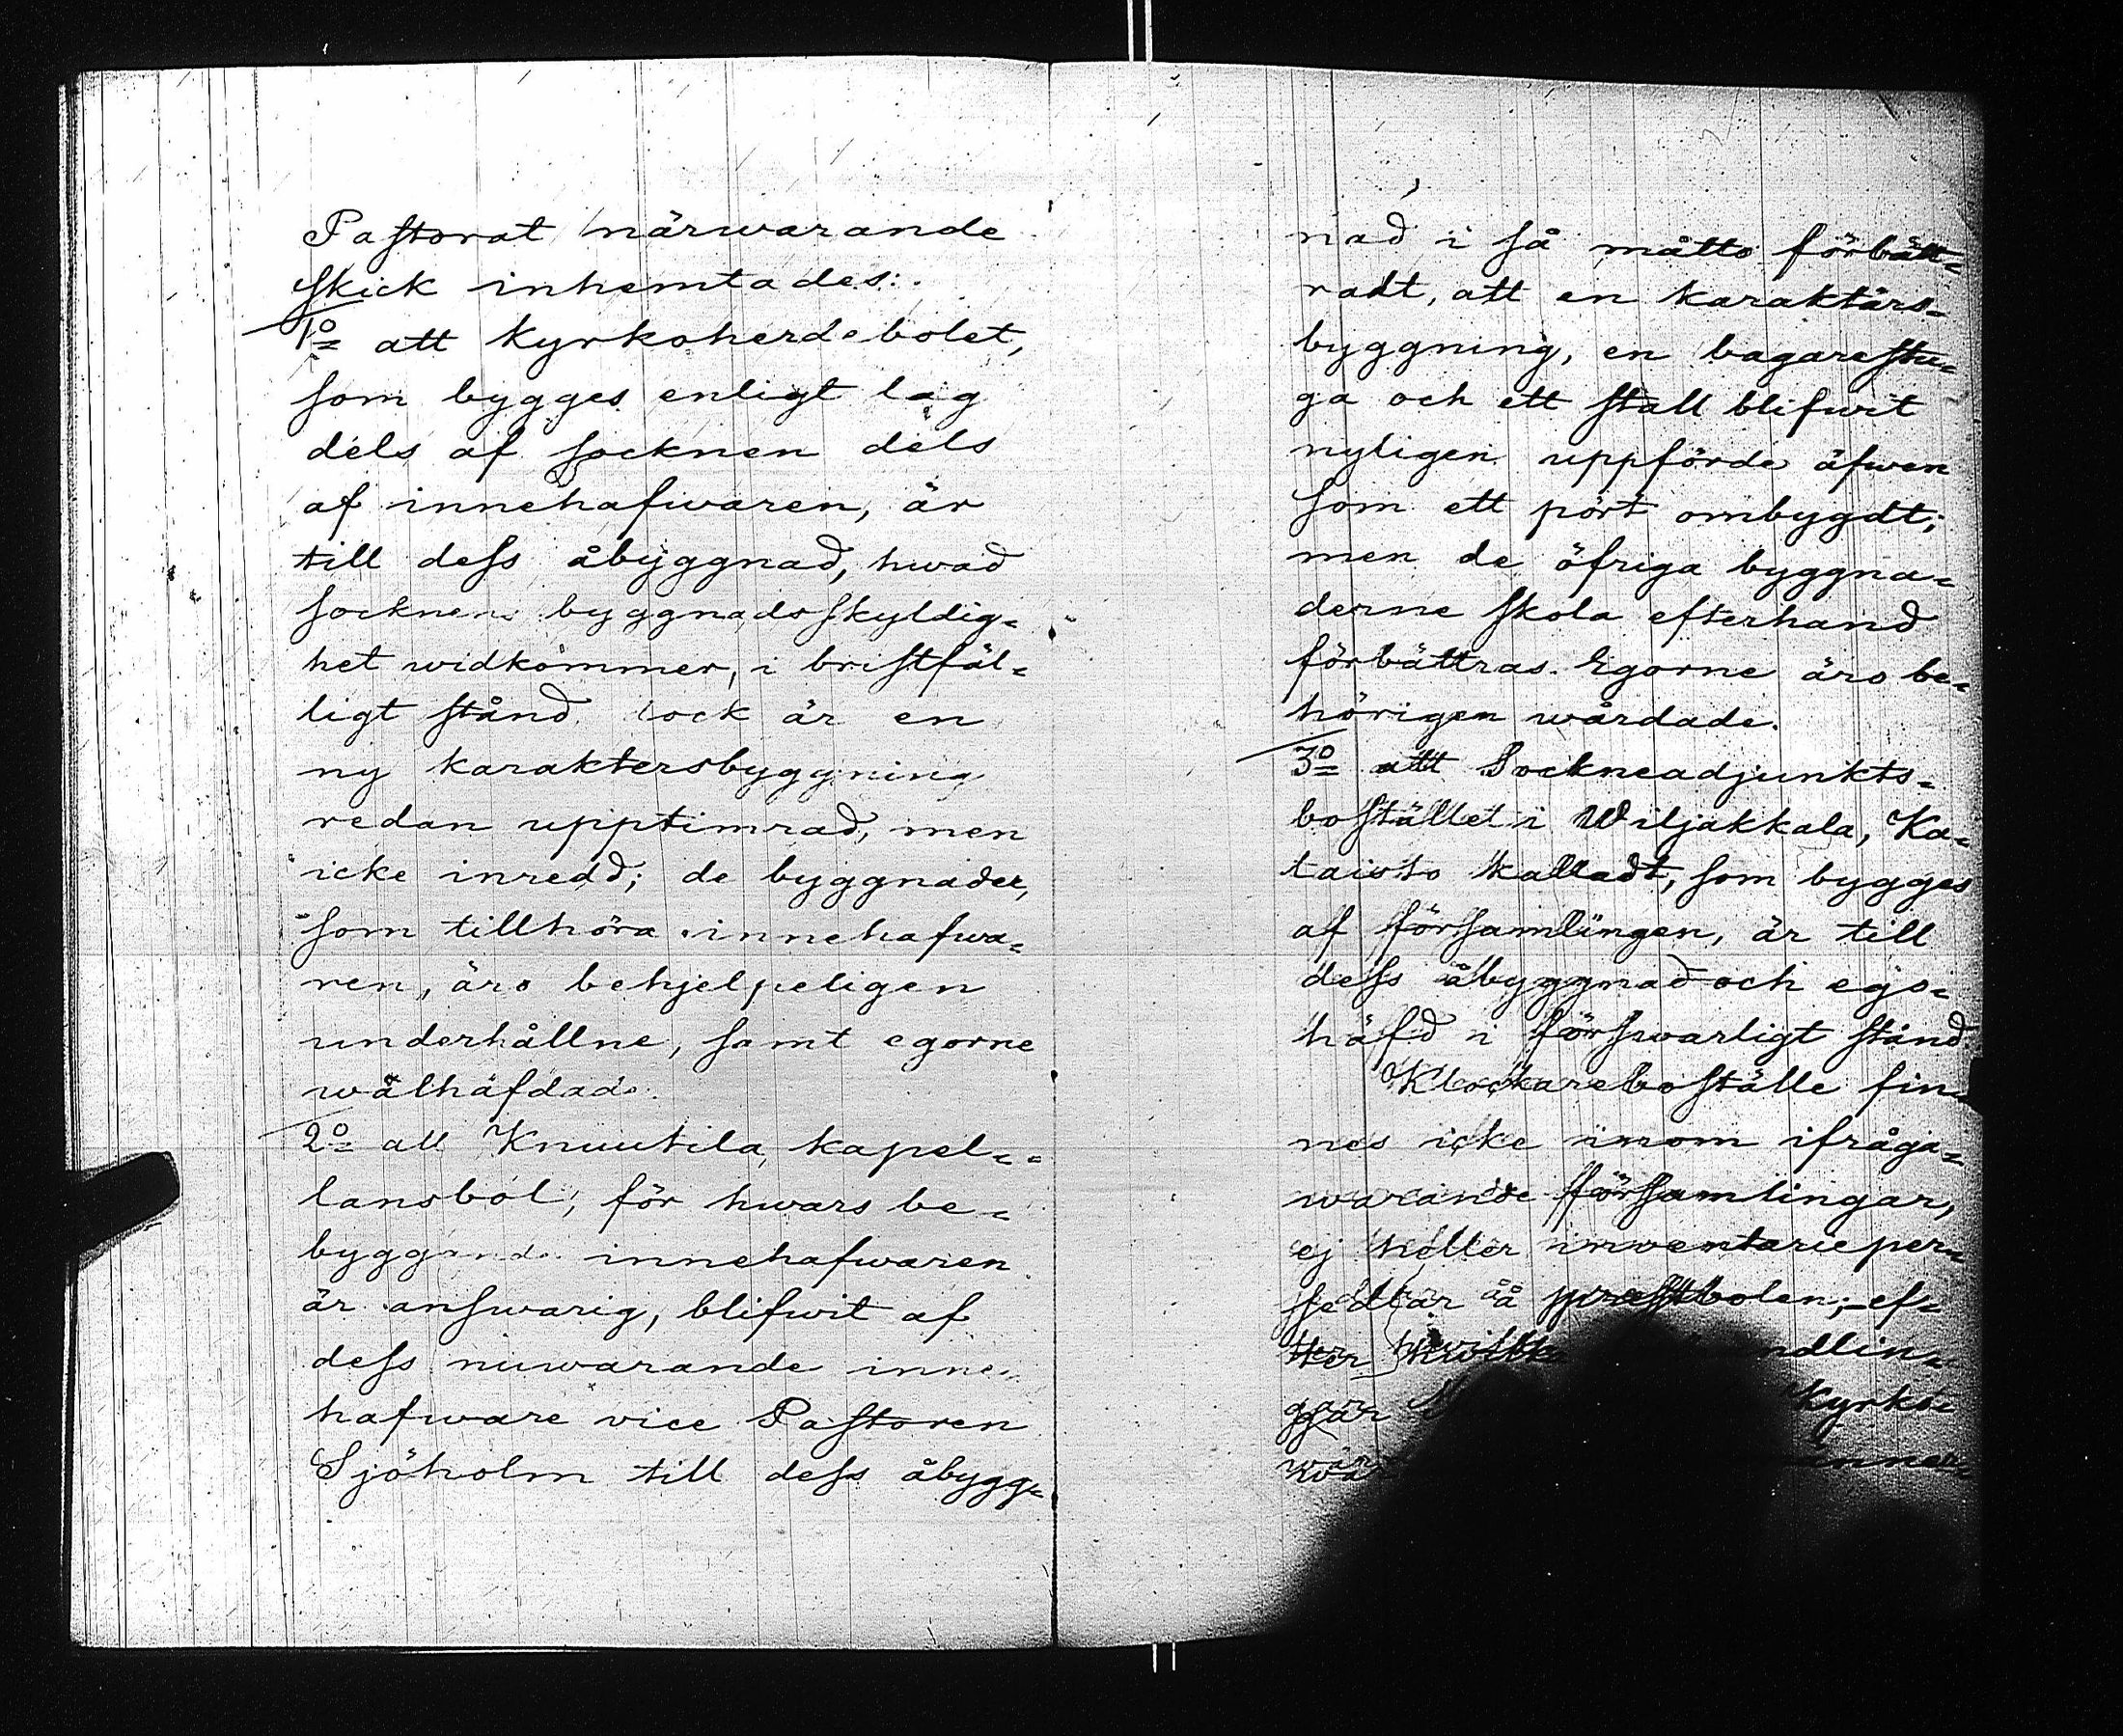 Pastorat närwarande
skick inhemtades:
1o att Kyrkoherdebolet,
som bygges enligt lag
dels af socknen dels
af innehafwaren, är
till dess åbyggnad, hwad
socknens byggnadsskyldig=
het widkommer, i bristfäl=
ligt stånd dock är en
ny karaktersbyggning
redan upptimrad, men
icke inredd; de byggnader,
som tillhöra innehafwa=
ren, äro behjelpeligen
underhållne, samt egorne
wälhäfdade.
2o att Knuutila, kapel=
lansbol, för hwars be=
byggande innehafwaren
är answarig, blifwit af
dess nuwarande inne=
hafware vice Pastoren
Sjöholm till dess åbygg=
nad i så måtto förbätt=
radt, att en karaktärs=
byggning, en bagarestu=
ga och ett stall blifwit
nyligen uppförde äfwen
som ett pört ombygdt;
men de öfriga byggna=
derne skola efterhand
förbättras. Egorne äro be=
hörigen wårdade.
3o att Sockneadjunkts=
bostället i Wiljakkala, Ka=
taisto kalladt, som bygges
af församlingen, är till
dess åbyggnad och ego=
häfd i förswarligt stånd
Klockareboställe fin=
nes icke inom ifråga=
warande församlingar,
ej heller inwentarieper=
sedlar å prestbolen; ef=
ter ndlin=
gar Kyrko=
wär inner=